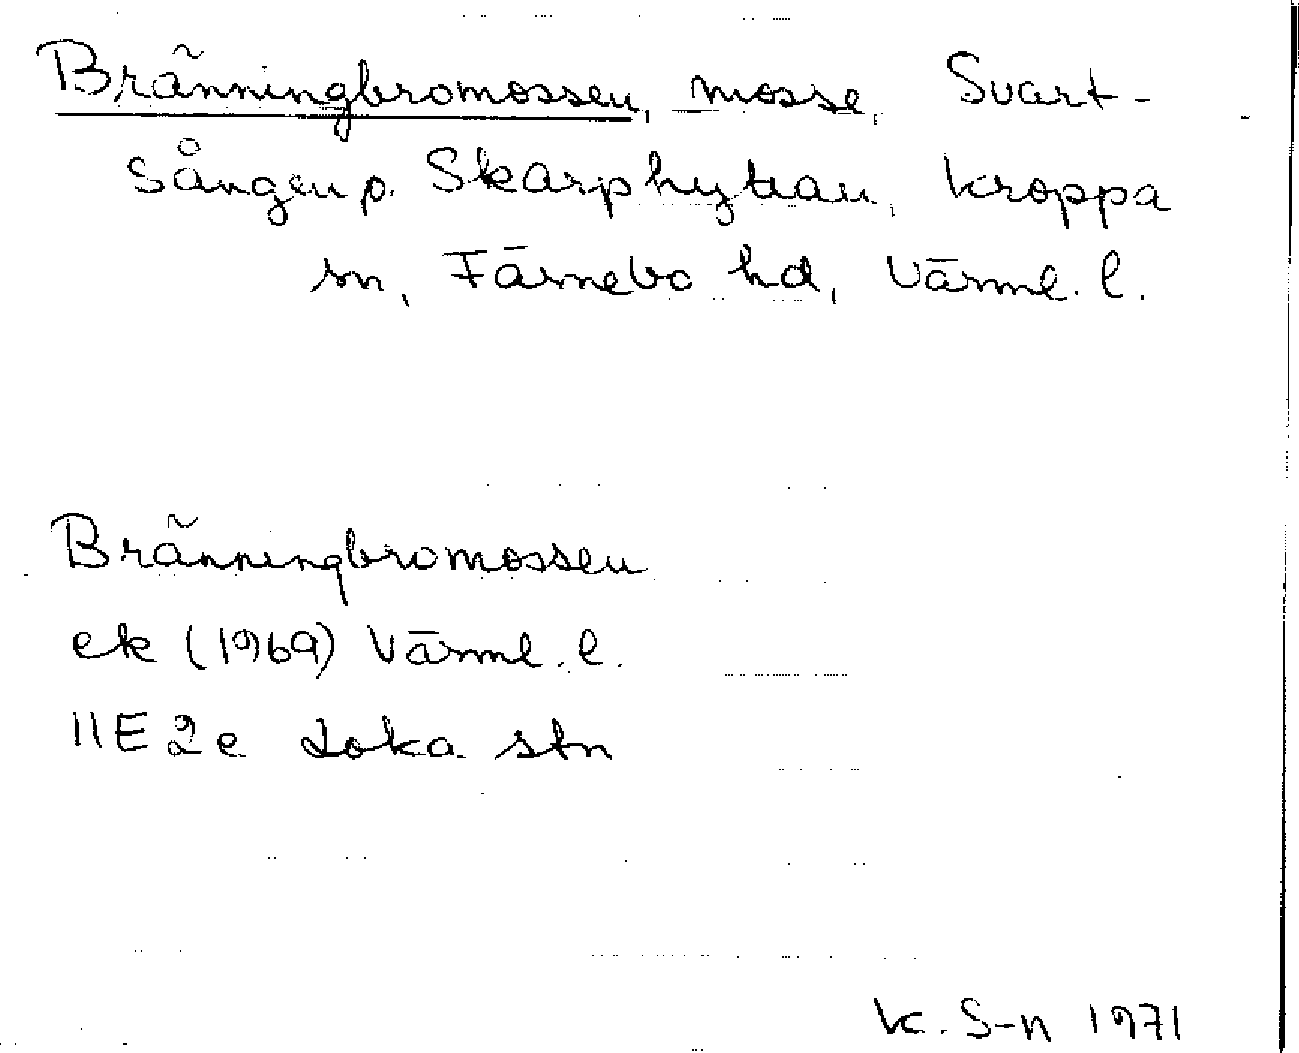 Bränningbromossen, mosse, Svart-
sången p. Skarphyttan, Kroppa
sn, Färnebo hd, Värml. l.
Bränningbromossen
ek (1969) Värml. l.
11E 2e Loka stn
K. S-n 1971